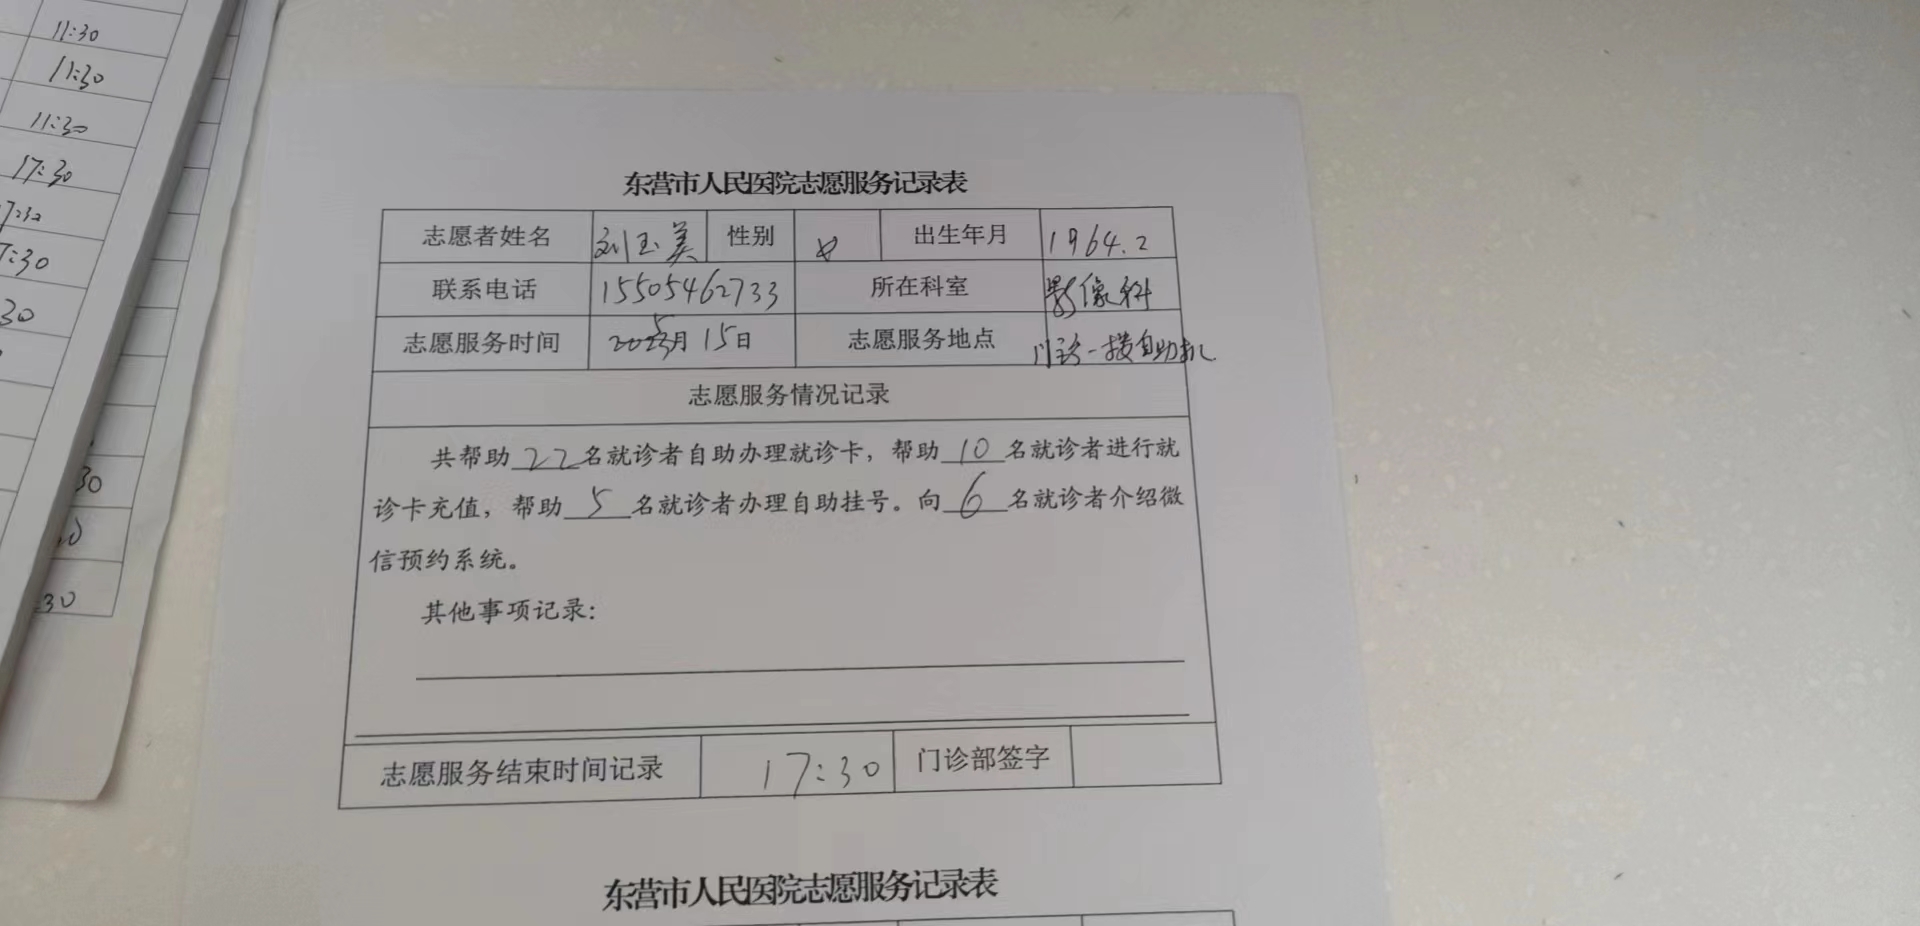 11:30
11:30
11:30
17:30
17:30
17:30
30
30
30
东营市人民医院志愿服务记录表
志愿者姓名 刘玉美 性别 女 出生年月 1964.2
联系电话 15505462733 所在科室 影像科
志愿服务时间 2023 5月15日 志愿服务地点 门诊一楼自助机
志愿服务情况记录
共帮助22名就诊者自助办理就诊卡，帮助10名就诊者进行就
诊卡充值，帮助5名就诊者办理自助挂号。向6名就诊者介绍微
信预约系统。
其他事项记录:
志愿服务结束时间记录 17:30 门诊部签字
东营市人民医院志愿服务记录表